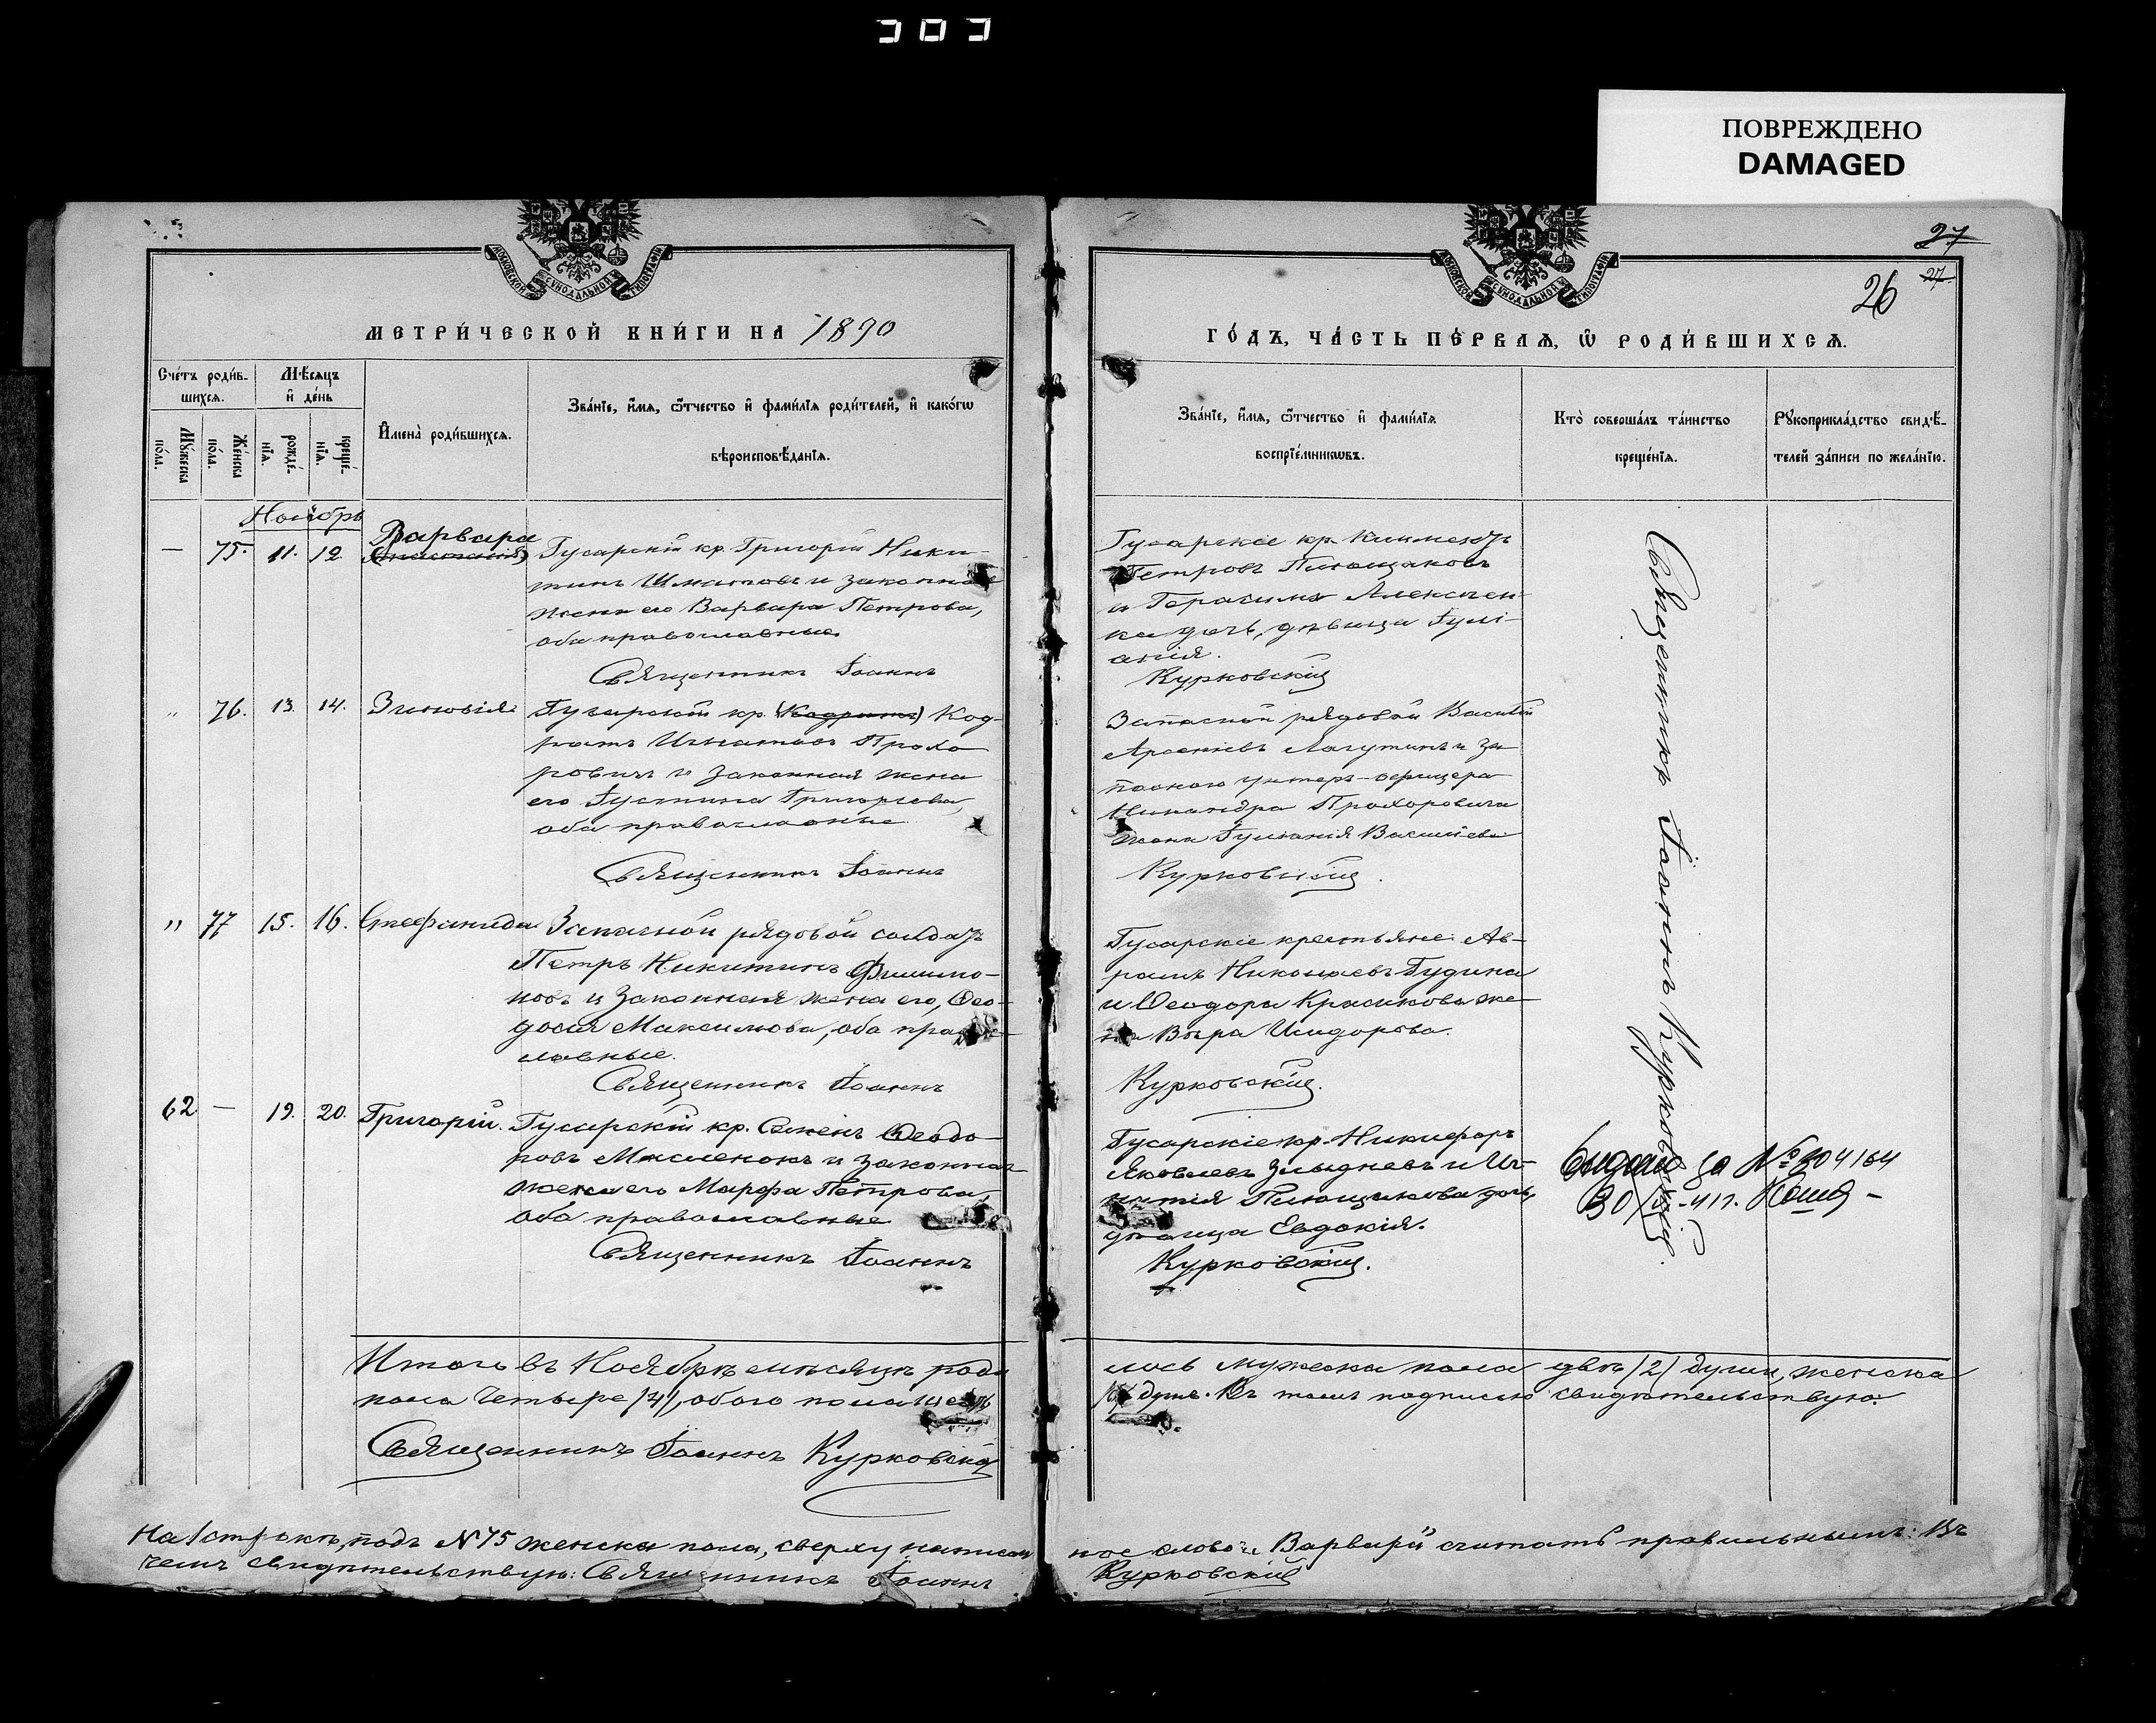 303
ПОВРЕЖДЕНО
DAMAGED
27
26 27
МОСКОВСКОЙ СѴНОДАЛЬНОЙ ТИПОГРАФІИ
МОСКОВСКОЙ СѴНОДАЛЬНОЙ ТИПОГРАФІИ
МЕТРИ́ЧЕСКОЙ КНИ́ГИ НА 1890
ГО́ДЪ, ЧА́СТЬ ПЕ́РВАѦ, Ѽ РОДИ́ВШИХСѦ.
Сче́тъ роди́в-
шихсѧ.
Мꙋжеска по́ла.
Же́нска по́ла.
Мѣ́сѧцъ и҆ де́нь
рожде́-нїѧ.
креще́-нїѧ.
И҆мена̀ роди́вшихсѧ.
Зва́нїе, и҆́мѧ, ѻ҆́тчество и҆ фами́лїѧ роди́телей, и҆ како́гѡ
вѣроисповѣ́данїѧ.
Зва́нїе, и҆́мѧ, ѻ҆́тчество и҆ фами́лїѧ
воспрїе́мникѡвъ.
Кто̀ соверша́лъ та́инство
креще́нїѧ.
Рꙋкоприкла́дство свидѣ́-
телей за́писи по жела́нїю.
Ноябрь
Варвара
— 75. 11. 12. Гусарскій кр. Григорій Ники-
тинъ и законная
жена его Варвара Петрова,
оба православные.
Священникъ Іоаннъ
Гусарскіе кр. Климентъ
Петровъ Плющаковъ
и Герасима Алексеен-
ка дочь, дѣвица Іулі-
анія.
Курковскій
" 76. 13. 14. Зиновія Гусарскій кр. Код-
ратъ Игнатовъ Прохо
ровичъ и законная жена
его Іустина Григорьева,
оба православные.
Священникъ Іоаннъ
Запасной рядовой Василій
Арсеніевъ Лагутинъ и за
паснаго унтеръ-офицера
Никандра Прохоровича
жена Іуліанія Васильева
Курковскій.
" 77 15. 16. Стефанида Запасной рядовой солдатъ
Петръ Никитинъ Филипо-
новъ и законная жена его, Ѳео-
досія Максимова, оба право-
славные.
Священникъ Іоаннъ
Гусарскіе крестьяне: Ав-
рамъ Николаевъ Гудина
и Ѳеодора Красикова же-
на Вѣра Исидорова.
Курковскій.
62 — 19. 20. Григорій. Гусарскій кр. Семенъ Ѳеодо-
ровъ Масленокъ и законная
жена его Марфа Петрова,
оба православные.
Священникъ Іоаннъ
Гусарскіе кр. Никифоръ
Яковлевъ Злыдневъ и Иг-
натія Плющакова дочь,
дѣвица Евдокія.
Курковскій.
Священникъ Іоаннъ Курковскій.
за № 804164
30
Итого въ Ноябрѣ мѣсяцѣ роди
лось мужеска пола двѣ /2/ души, женска
пола четыре /4/, обоего пола шесть
/6/ душъ. Въ томъ подписью свидѣтельствую:
Священникъ Іоаннъ Курковскій
На 1 строкѣ, подъ №75 женска пола, сверху написан
ное слово: „Варвара" считать правильнымъ: Въ
чемъ свидѣтельствую: Священникъ Іоаннъ
Курковскій